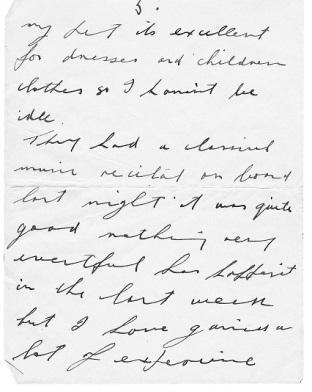 5.
my bet its excellent
for dresses and children
clothes so I havn't be
idle.
They had a classical
music recital on board
last night it was quite
good nothing very
eventful has happint
in the last week
but I have gained a
lot of experience